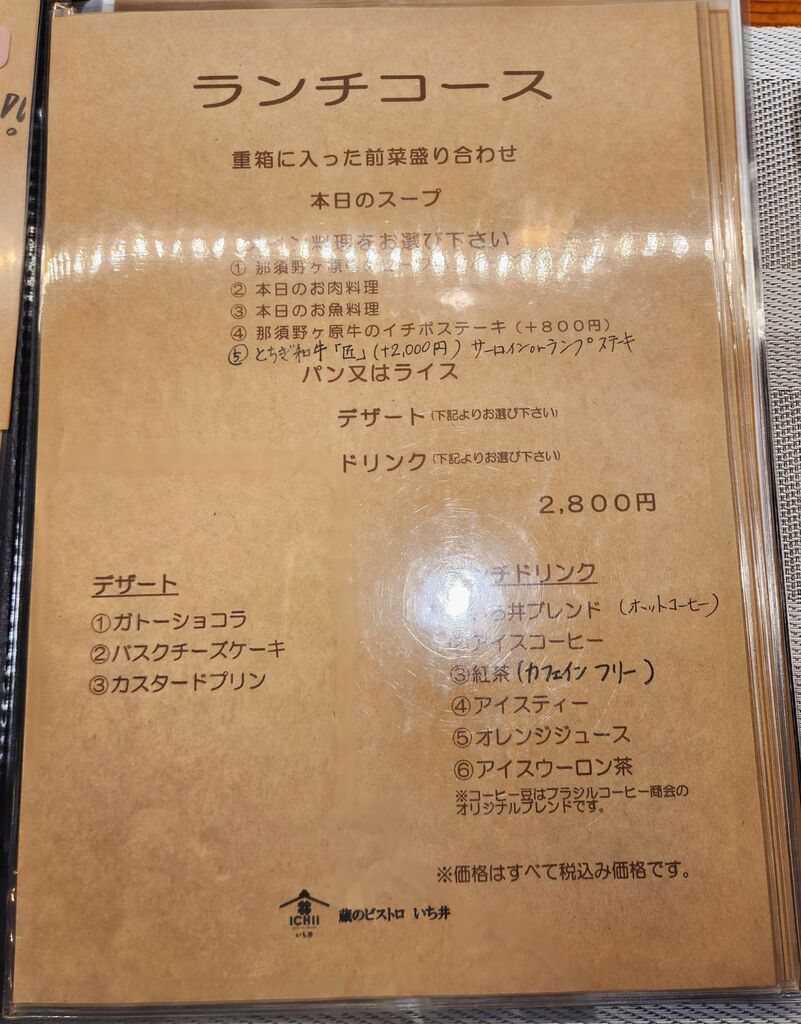 ランチコース
重箱に入った前菜盛り合わせ
本日のスープ
料理をお選び下さい
① 那須野ヶ原
② 本日のお肉料理
③ 本日のお魚料理
④ 那須野ヶ原牛のイチボステーキ（+800円）
⑤ とちぎ和牛「匠」(+2,000円) サーロインorランプステーキ
パン又はライス
デザート(下記よりお選び下さい)
ドリンク(下記よりお選び下さい)
2,800円
デザート
①ガトーショコラ
②バスクチーズケーキ
③カスタードプリン
チドリンク
井ブレンド (ホットコーヒー)
アイスコーヒー
③紅茶(カフェインフリー)
④アイスティー
⑤オレンジジュース
⑥アイスウーロン茶
※コーヒー豆はブラジルコーヒー商会の
オリジナルブレンドです。
※価格はすべて税込み価格です。
ICHII
いち井
蔵のビストロ いち井